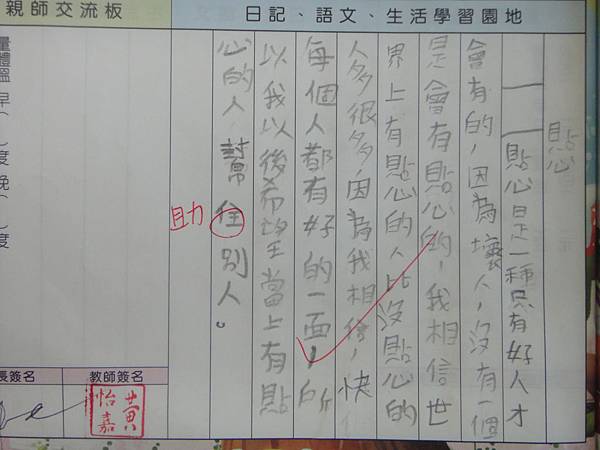 親師交流板
日記、語文、生活學習園地
貼心
貼心是一種只有好人才
會有的，因為壞人，沒有一個
是會有貼心的，我相信世
界上有貼心的人比沒貼心的
人多很多，因為我相信，快
每個人都有好的一面，所
以我以後希望當上有貼
心的人幫住別人。
助
量體溫 早（ ）度 晚（ ）度
長簽名
教師簽名
黃怡嘉